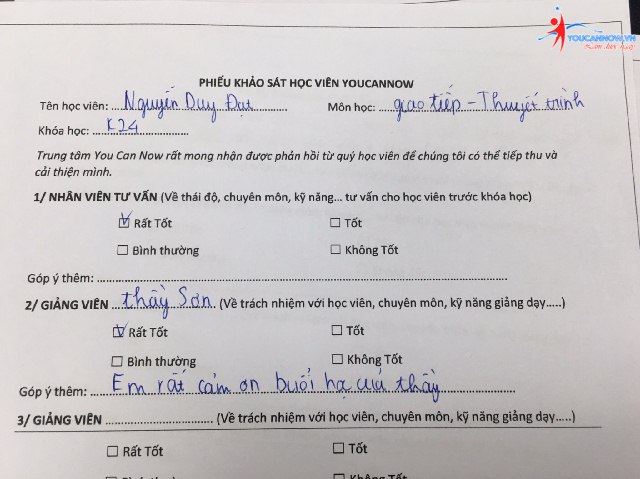 YOUCANNOW.VN
PHIẾU KHẢO SÁT HỌC VIÊN YOUCANNOW
Tên học viên: Nguyễn Duy Đạt Môn học: giao tiếp - Thuyết trình
Khóa học: K24
Trung tâm You Can Now rất mong nhận được phản hồi từ quý học viên để chúng tôi có thể tiếp thu và
cải thiện mình.
1/ NHÂN VIÊN TƯ VẤN (Về thái độ, chuyên môn, kỹ năng... tư vấn cho học viên trước khóa học)
☑ Rất Tốt ☐ Tốt
☐ Bình thường ☐ Không Tốt
Góp ý thêm:
2/ GIẢNG VIÊN thầy Sơn (Về trách nhiệm với học viên, chuyên môn, kỹ năng giảng dạy.....)
☑ Rất Tốt ☐ Tốt
☐ Bình thường ☐ Không Tốt
Góp ý thêm: Em rất cảm ơn buổi học của thầy
3/ GIẢNG VIÊN (Về trách nhiệm với học viên, chuyên môn, kỹ năng giảng dạy.....)
☐ Rất Tốt ☐ Tốt
☐ Không Tốt